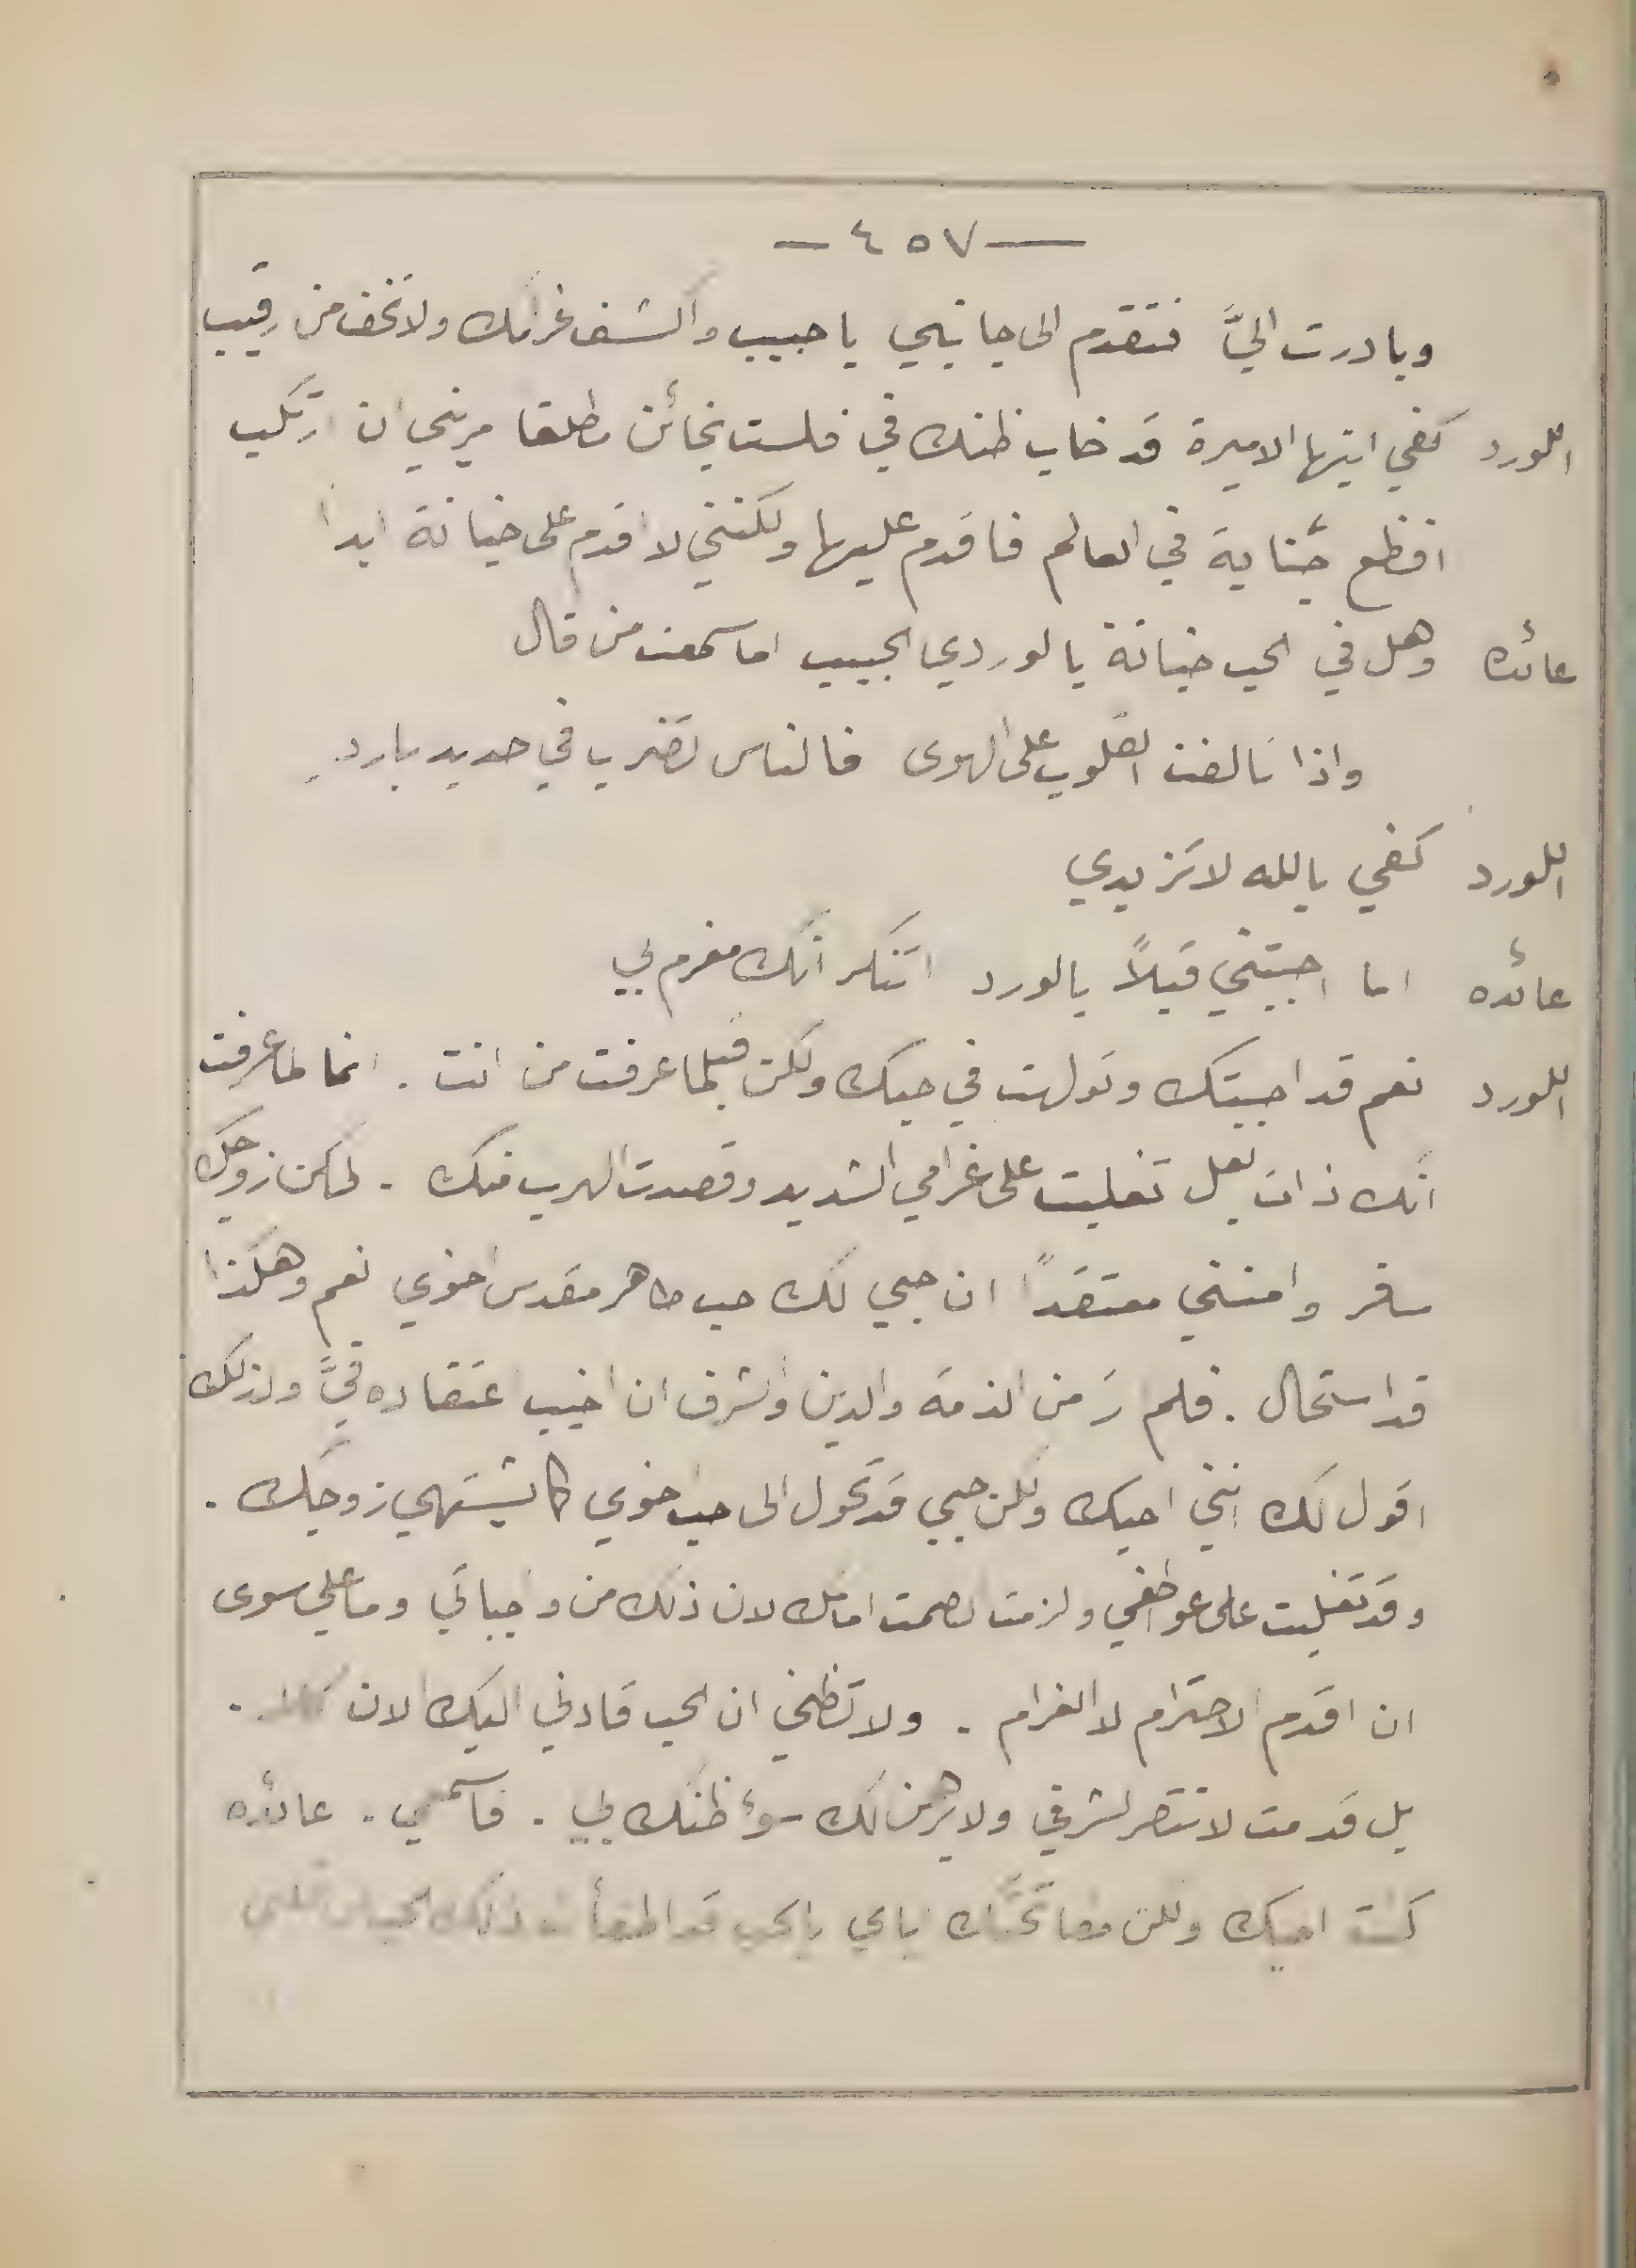 — ٤٥٧ —
وبادرت اليَّ فتقدم الى جانبي يا حبيب واكشف غرامك ولا تخف من رقيب
اللورد كفي ايتها الاميرة قد خاب ظنك في فلست بخائن مطلقا مريني ان ارتكب
افظع جناية في العالم فاقدم عليها ولكنني لا اقدم على خيانة ابدا
عائده وهل في الحب خيانة يا لوردي الحبيب اما سمعت من قال
واذا تالفت القلوب على الهوى فالناس تضرب في حديد بارد
اللورد كفي بالله لا تزيدي
عائده اما احببتني قبلاً يا لورد اتنكر انك مغرم بي
اللورد نعم قد احببتك وتولهت في حبك ولكن قبلما عرفت من انت . انما لما عرفت
انك ذات بعل تغلبت على غرامي الشديد وقصدت الهرب منك . لكن زوجك
سافر وامنني معتقداً ان حبي لك حب طاهر مقدس اخوي نعم وهكذا
قد استحال . فلم ارَ من الذمة والدين والشرف ان اخيب اعتقاده فيَّ ولذلك
اقول لك انني احبك ولكن حبي قد تحول الى حب اخوي كما يشتهي زوجك .
وقد تغلبت على عواطفي ولزمت الصمت امامك لان ذلك من واجباتي وما علي سوى
ان اقدم الاحترام لا الغرام . ولا تظني ان الحب قادني اليك الان .
بل قدمت لانتصر لشرفي ولابرهن لك سوء ظنك بي . فاسمعي . عائده
كنت احبك ولكن مفاتحتك اياي بالحب قد اطفأت ذلك الحب من قلبي